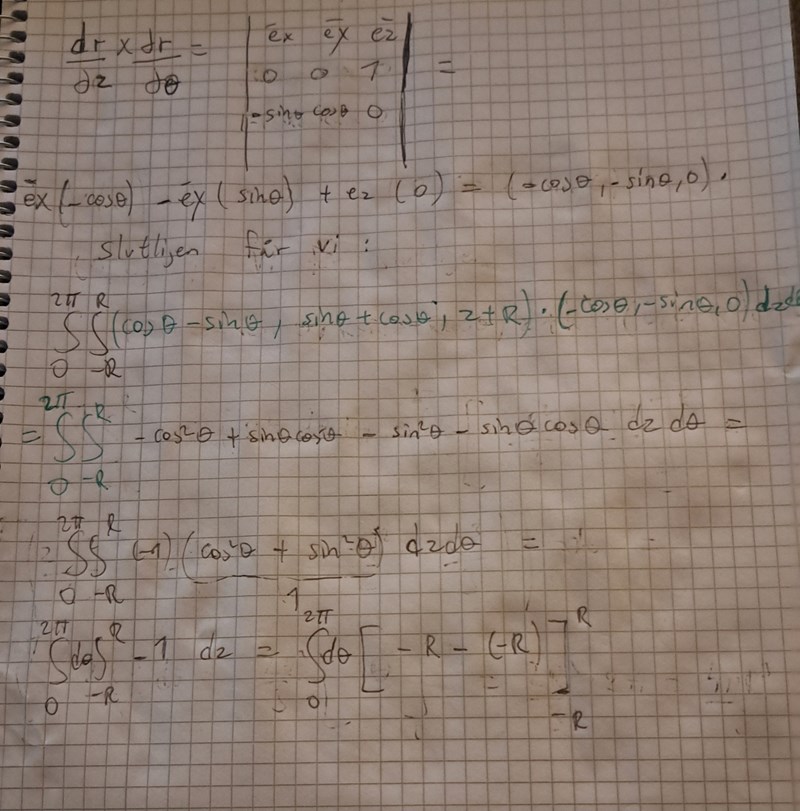 dr/dz × dr/dθ = | ēx ēy ēz |
| 0 0 1 | =
| -sinθ cosθ 0 |
ēx(-cosθ) - ēy(sinθ) + ez(0) = (-cosθ, -sinθ, 0).
Slutligen får vi:
∫_0^{2π} ∫_{-R}^{R} (cosθ - sinθ, sinθ + cosθ, z+R)·(-cosθ, -sinθ, 0) dzdθ
= ∫_0^{2π} ∫_{-R}^{R} -cos²θ + sinθcosθ - sin²θ - sinθcosθ dz dθ =
= ∫_0^{2π} ∫_{-R}^{R} (-1)(cos²θ + sin²θ) dzdθ =
1
∫_0^{2π} dθ ∫_{-R}^{R} -1 dz = ∫_0^{2π} dθ [ -R - (-R) ]_{-R}^{R}